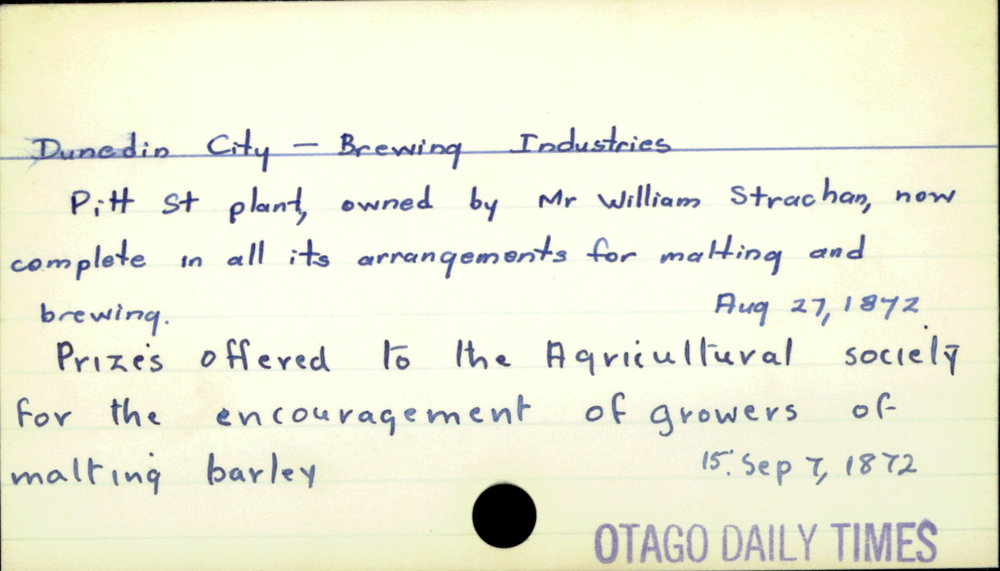 Dunedin City — Brewing Industries
Pitt St plant, owned by Mr William Strachan, now
complete in all its arrangements for malting and
brewing. Aug 27, 1872
Prizes offered to the Agricultural society
for the encouragement of growers of
malting barley 15. Sep 7, 1872
OTAGO DAILY TIMES